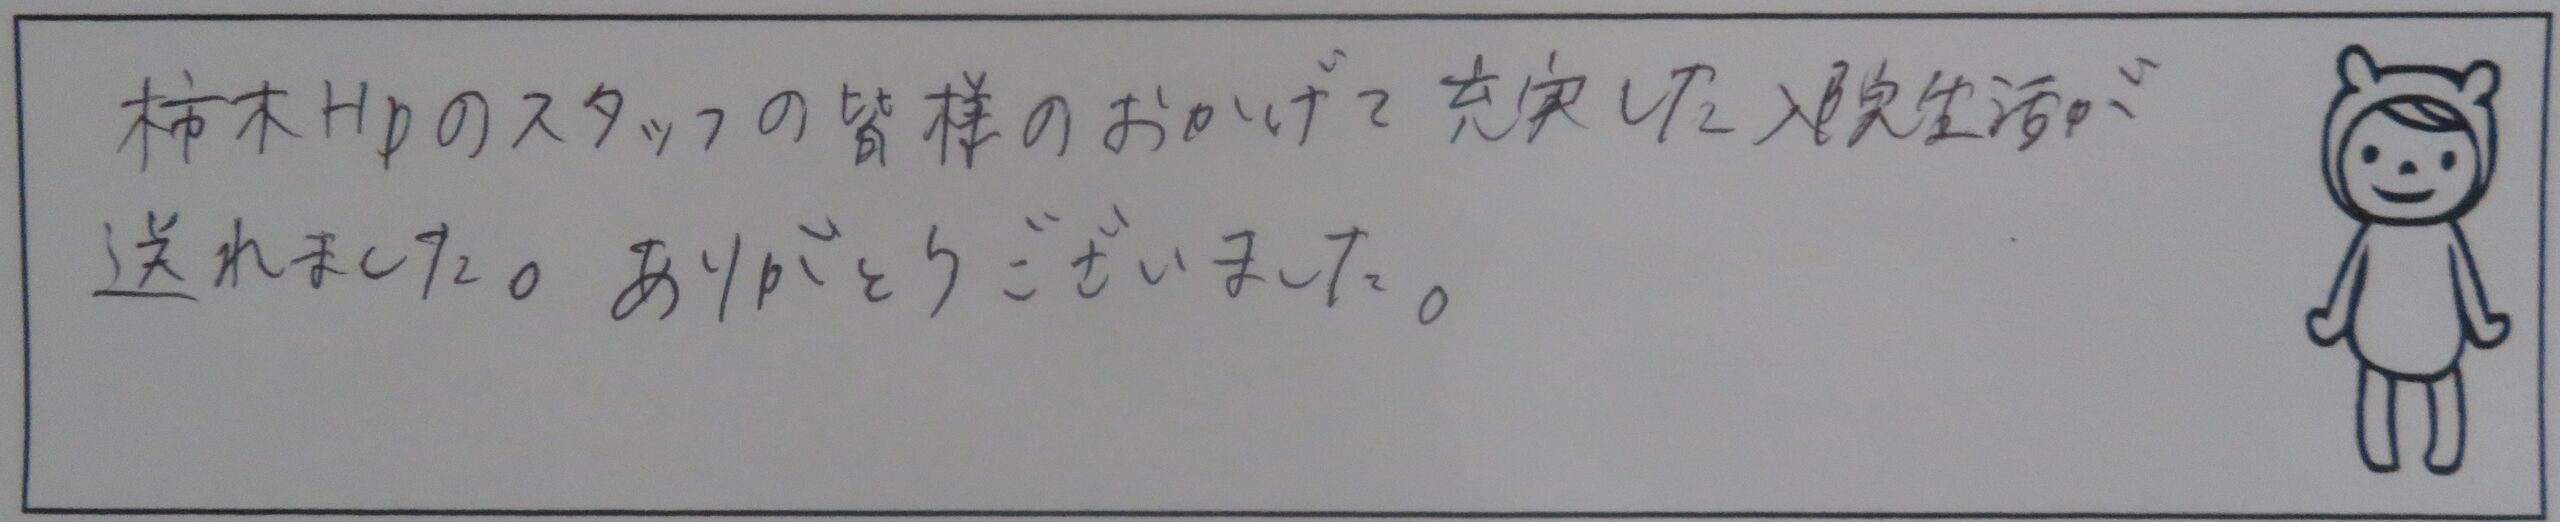 柿木Hpのスタッフの皆様のおかげで充実した入院生活が
送れました。ありがとうございました。